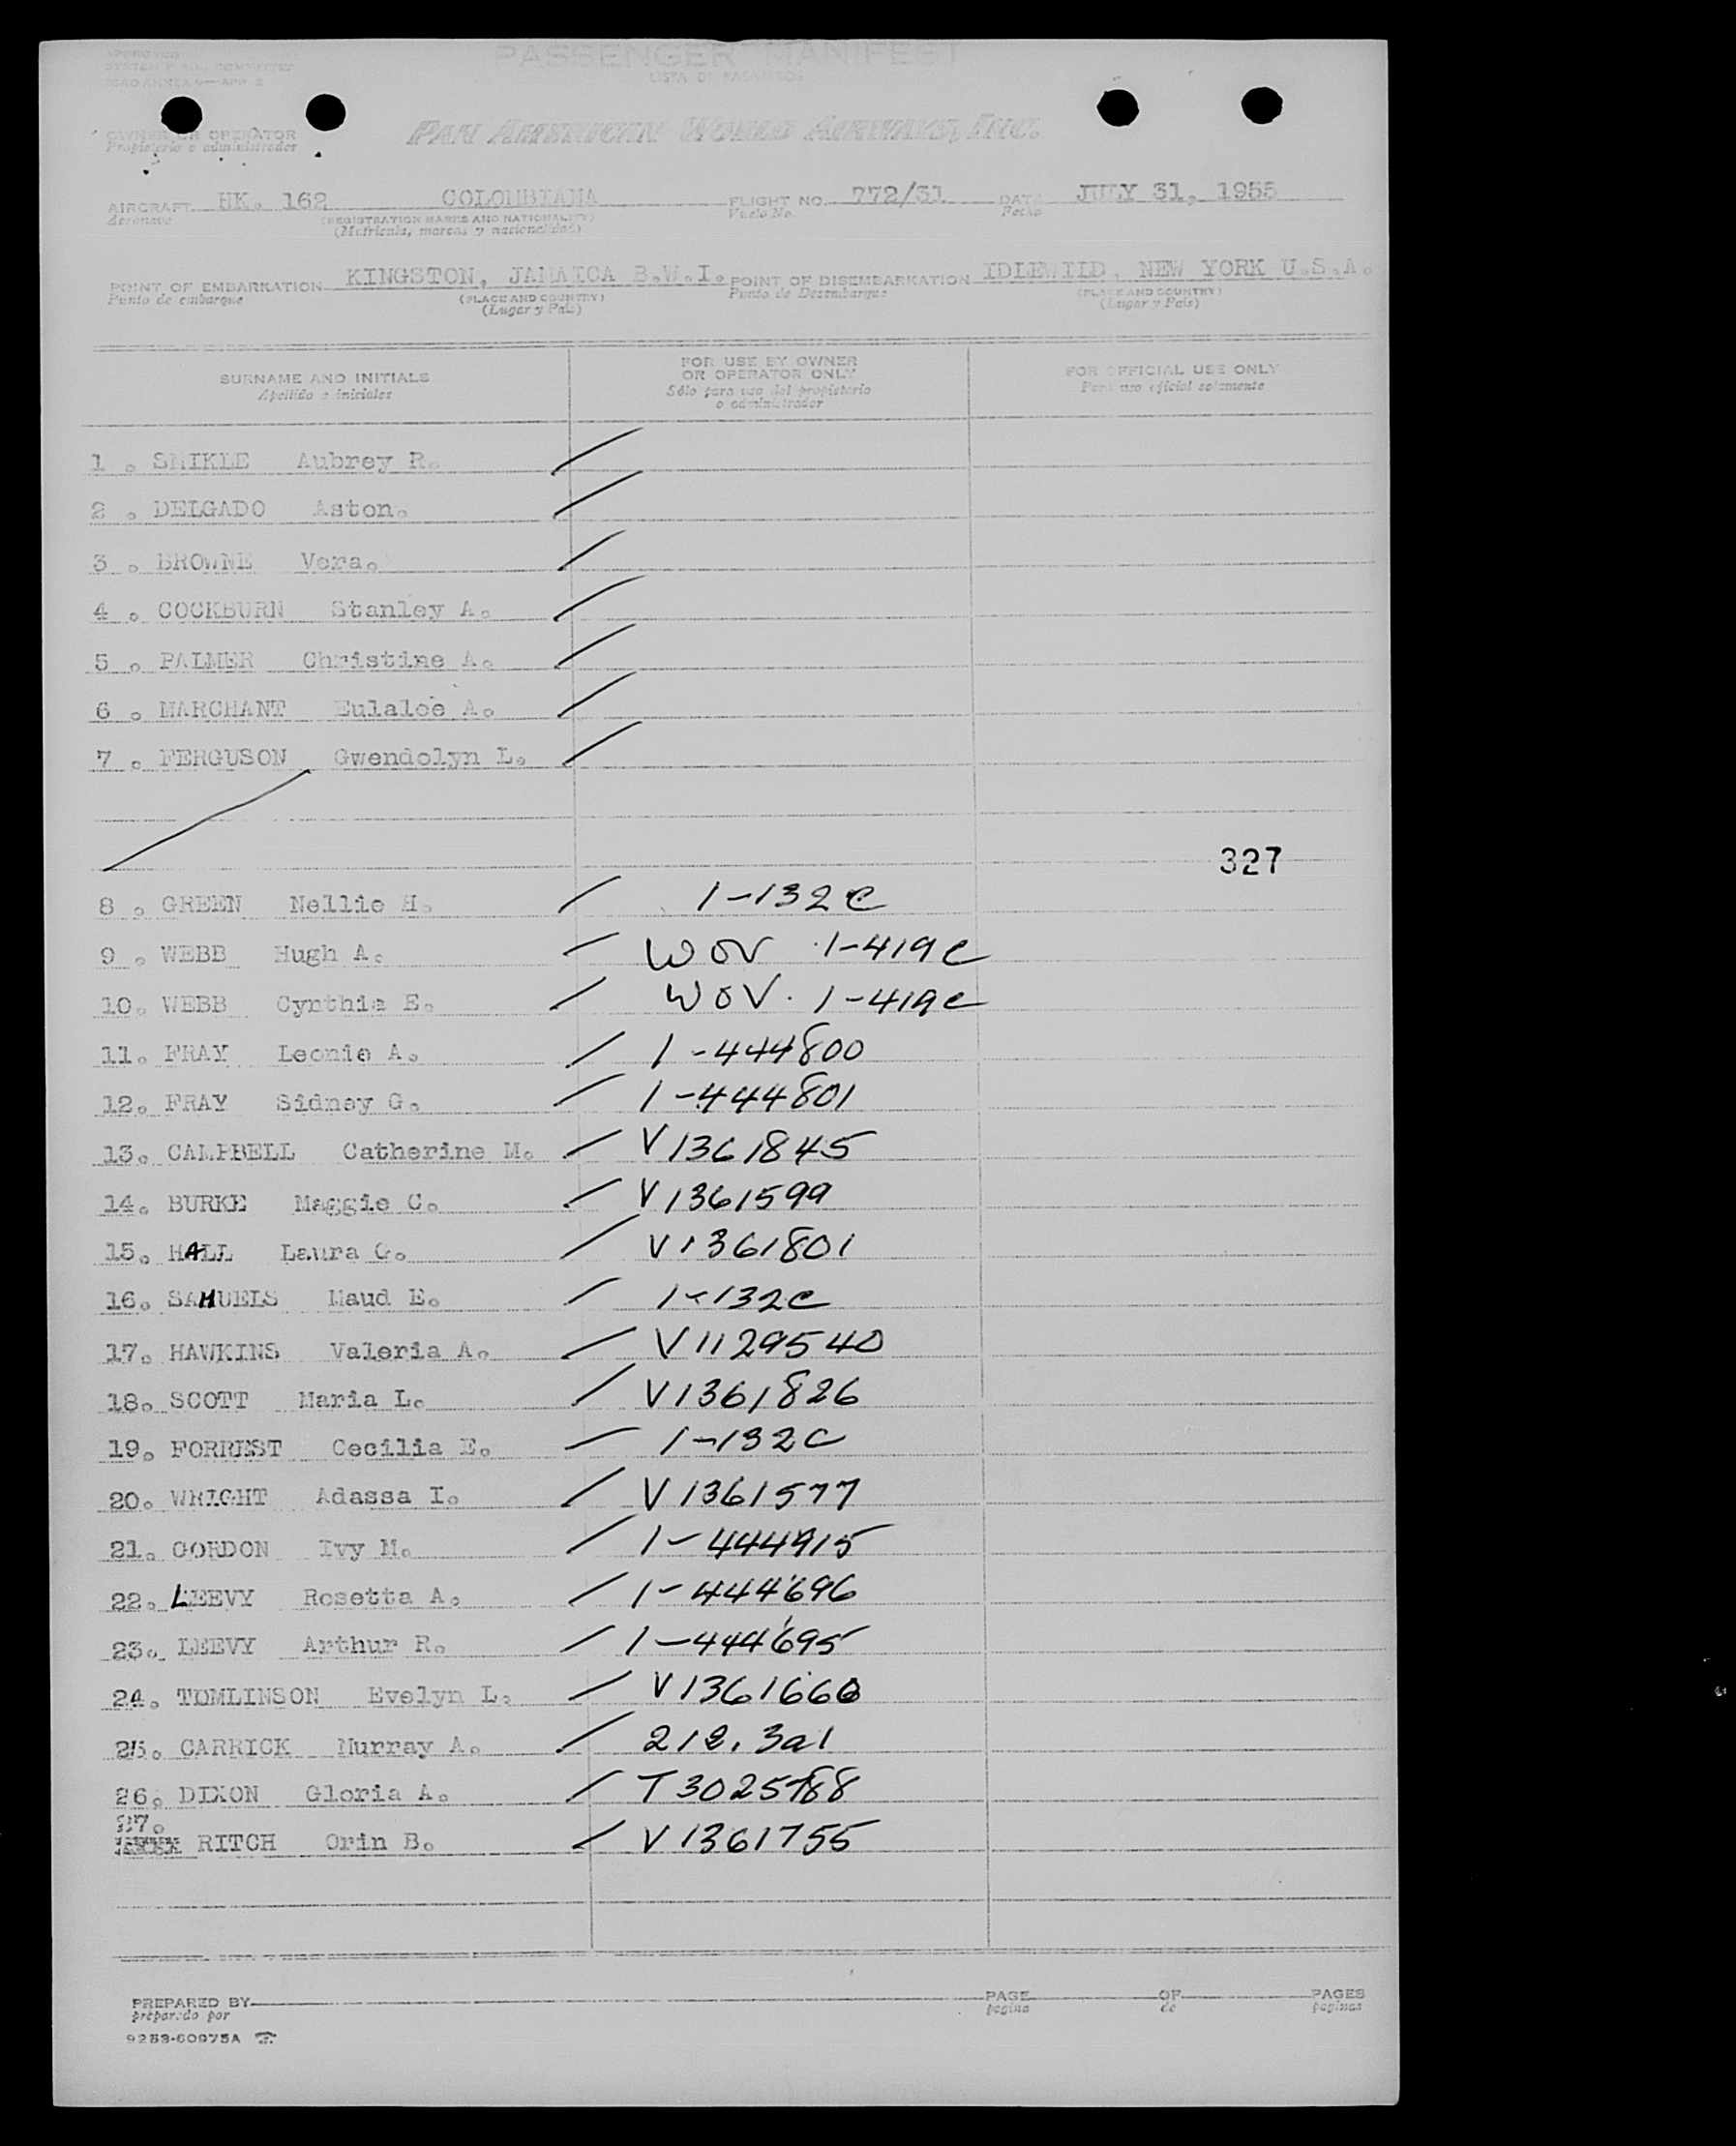 PASSENGER MANIFEST
LISTA DE PASAJEROS
OWNER OR OPERATOR PAN AMERICAN WORLD AIRWAYS, INC.
Propietario o administrador
AIRCRAFT HK. 162 COLOMBIANA FLIGHT NO. 772/31 DATE JULY 31, 1955
Aeronave (REGISTRATION MARKS AND NATIONALITY) Vuelo No. Fecha
(Matricula, marcas y nacionalidad)
POINT OF EMBARKATION KINGSTON, JAMAICA B.W.I. POINT OF DISEMBARKATION IDLEWILD, NEW YORK U.S.A.
Punto de embarque (PLACE AND COUNTRY) Punto de Desembarque (PLACE AND COUNTRY)
(Lugar y Pais) (Lugar y Pais)
SURNAME AND INITIALS FOR USE BY OWNER OR OPERATOR ONLY FOR OFFICIAL USE ONLY
Apellido e iniciales Sólo para uso del propietario o administrador Para uso oficial solamente
1. SMIKLE Aubrey R.
2. DELGADO Aston.
3. BROWNE Vera.
4. COCKBURN Stanley A.
5. PALMER Christine A.
6. MARCHANT Eulalee A.
7. FERGUSON Gwendolyn L.
327
8. GREEN Nellie H. 1-132c
9. WEBB Hugh A. WOV 1-419c
10. WEBB Cynthia E. WOV. 1-419c
11. FRAY Leonie A. 1-444800
12. FRAY Sidney G. 1-444801
13. CAMPBELL Catherine M. V1361845
14. BURKE Maggie C. V1361599
15. HALL Laura G. V1361801
16. SAMUELS Maud E. 1-132c
17. HAWKINS Valeria A. V1129540
18. SCOTT Maria L. V1361826
19. FORREST Cecilia E. 1-132C
20. WRIGHT Adassa I. V1361577
21. GORDON Ivy M. 1-444915
22. LEEVY Rosetta A. 1-444696
23. LEEVY Arthur R. 1-444695
24. TOMLINSON Evelyn L. V1361660
25. CARRICK Murray A. 212.3a1
26. DIXON Gloria A. T3025788
27. RITCH Orin B. V1361755
PREPARED BY PAGE OF PAGES
preparado por pagina de paginas
9253-60975A